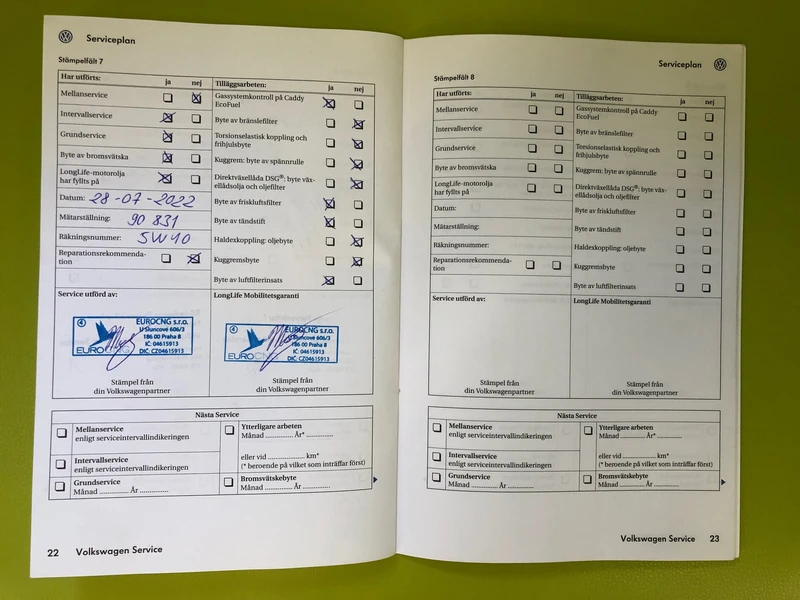 Serviceplan
Stämpelfält 7
Har utförts: ja nej
Mellanservice
Intervallservice
Grundservice
Byte av bromsvätska
LongLife-motorolja
har fyllts på
Datum: 28-07-2022
Mätarställning: 90 831
Räkningsnummer: 5W40
Reparationsrekommenda-
tion
Tilläggsarbeten: ja nej
Gassystemkontroll på Caddy
EcoFuel
Byte av bränslefilter
Torsionselastisk koppling och
frihjulsbyte
Kuggrem: byte av spännrulle
Direktväxellåda DSG®: byte väx-
ellådsolja och oljefilter
Byte av friskluftsfilter
Byte av tändstift
Haldexkoppling: oljebyte
Kuggremsbyte
Byte av luftfilterinsats
Service utförd av:
4
EUROCNG
EUROCNG s.r.o.
U Sluncové 606/3
186 00 Praha 8
IČ: 04615913
DIČ: CZ04615913
Stämpel från
din Volkswagenpartner
LongLife Mobilitetsgaranti
4
EUROCNG
EUROCNG s.r.o.
U Sluncové 606/3
186 00 Praha 8
IČ: 04615913
DIČ: CZ04615913
Stämpel från
din Volkswagenpartner
Nästa Service
Mellanservice
enligt serviceintervallindikeringen
Intervallservice
enligt serviceintervallindikeringen
Grundservice
Månad .............. År ..............
Ytterligare arbeten
Månad .............. År* ..............
eller vid .................... km*
(* beroende på vilket som inträffar först)
Bromsvätskebyte
Månad .............. År ..............
22 Volkswagen Service
Serviceplan
Stämpelfält 8
Har utförts: ja nej
Mellanservice
Intervallservice
Grundservice
Byte av bromsvätska
LongLife-motorolja
har fyllts på
Datum:
Mätarställning:
Räkningsnummer:
Reparationsrekommenda-
tion
Tilläggsarbeten: ja nej
Gassystemkontroll på Caddy
EcoFuel
Byte av bränslefilter
Torsionselastisk koppling och
frihjulsbyte
Kuggrem: byte av spännrulle
Direktväxellåda DSG®: byte väx-
ellådsolja och oljefilter
Byte av friskluftsfilter
Byte av tändstift
Haldexkoppling: oljebyte
Kuggremsbyte
Byte av luftfilterinsats
Service utförd av:
Stämpel från
din Volkswagenpartner
LongLife Mobilitetsgaranti
Stämpel från
din Volkswagenpartner
Nästa Service
Mellanservice
enligt serviceintervallindikeringen
Intervallservice
enligt serviceintervallindikeringen
Grundservice
Månad .............. År ..............
Ytterligare arbeten
Månad .............. År* ..............
eller vid .................... km*
(* beroende på vilket som inträffar först)
Bromsvätskebyte
Månad .............. År ..............
Volkswagen Service 23